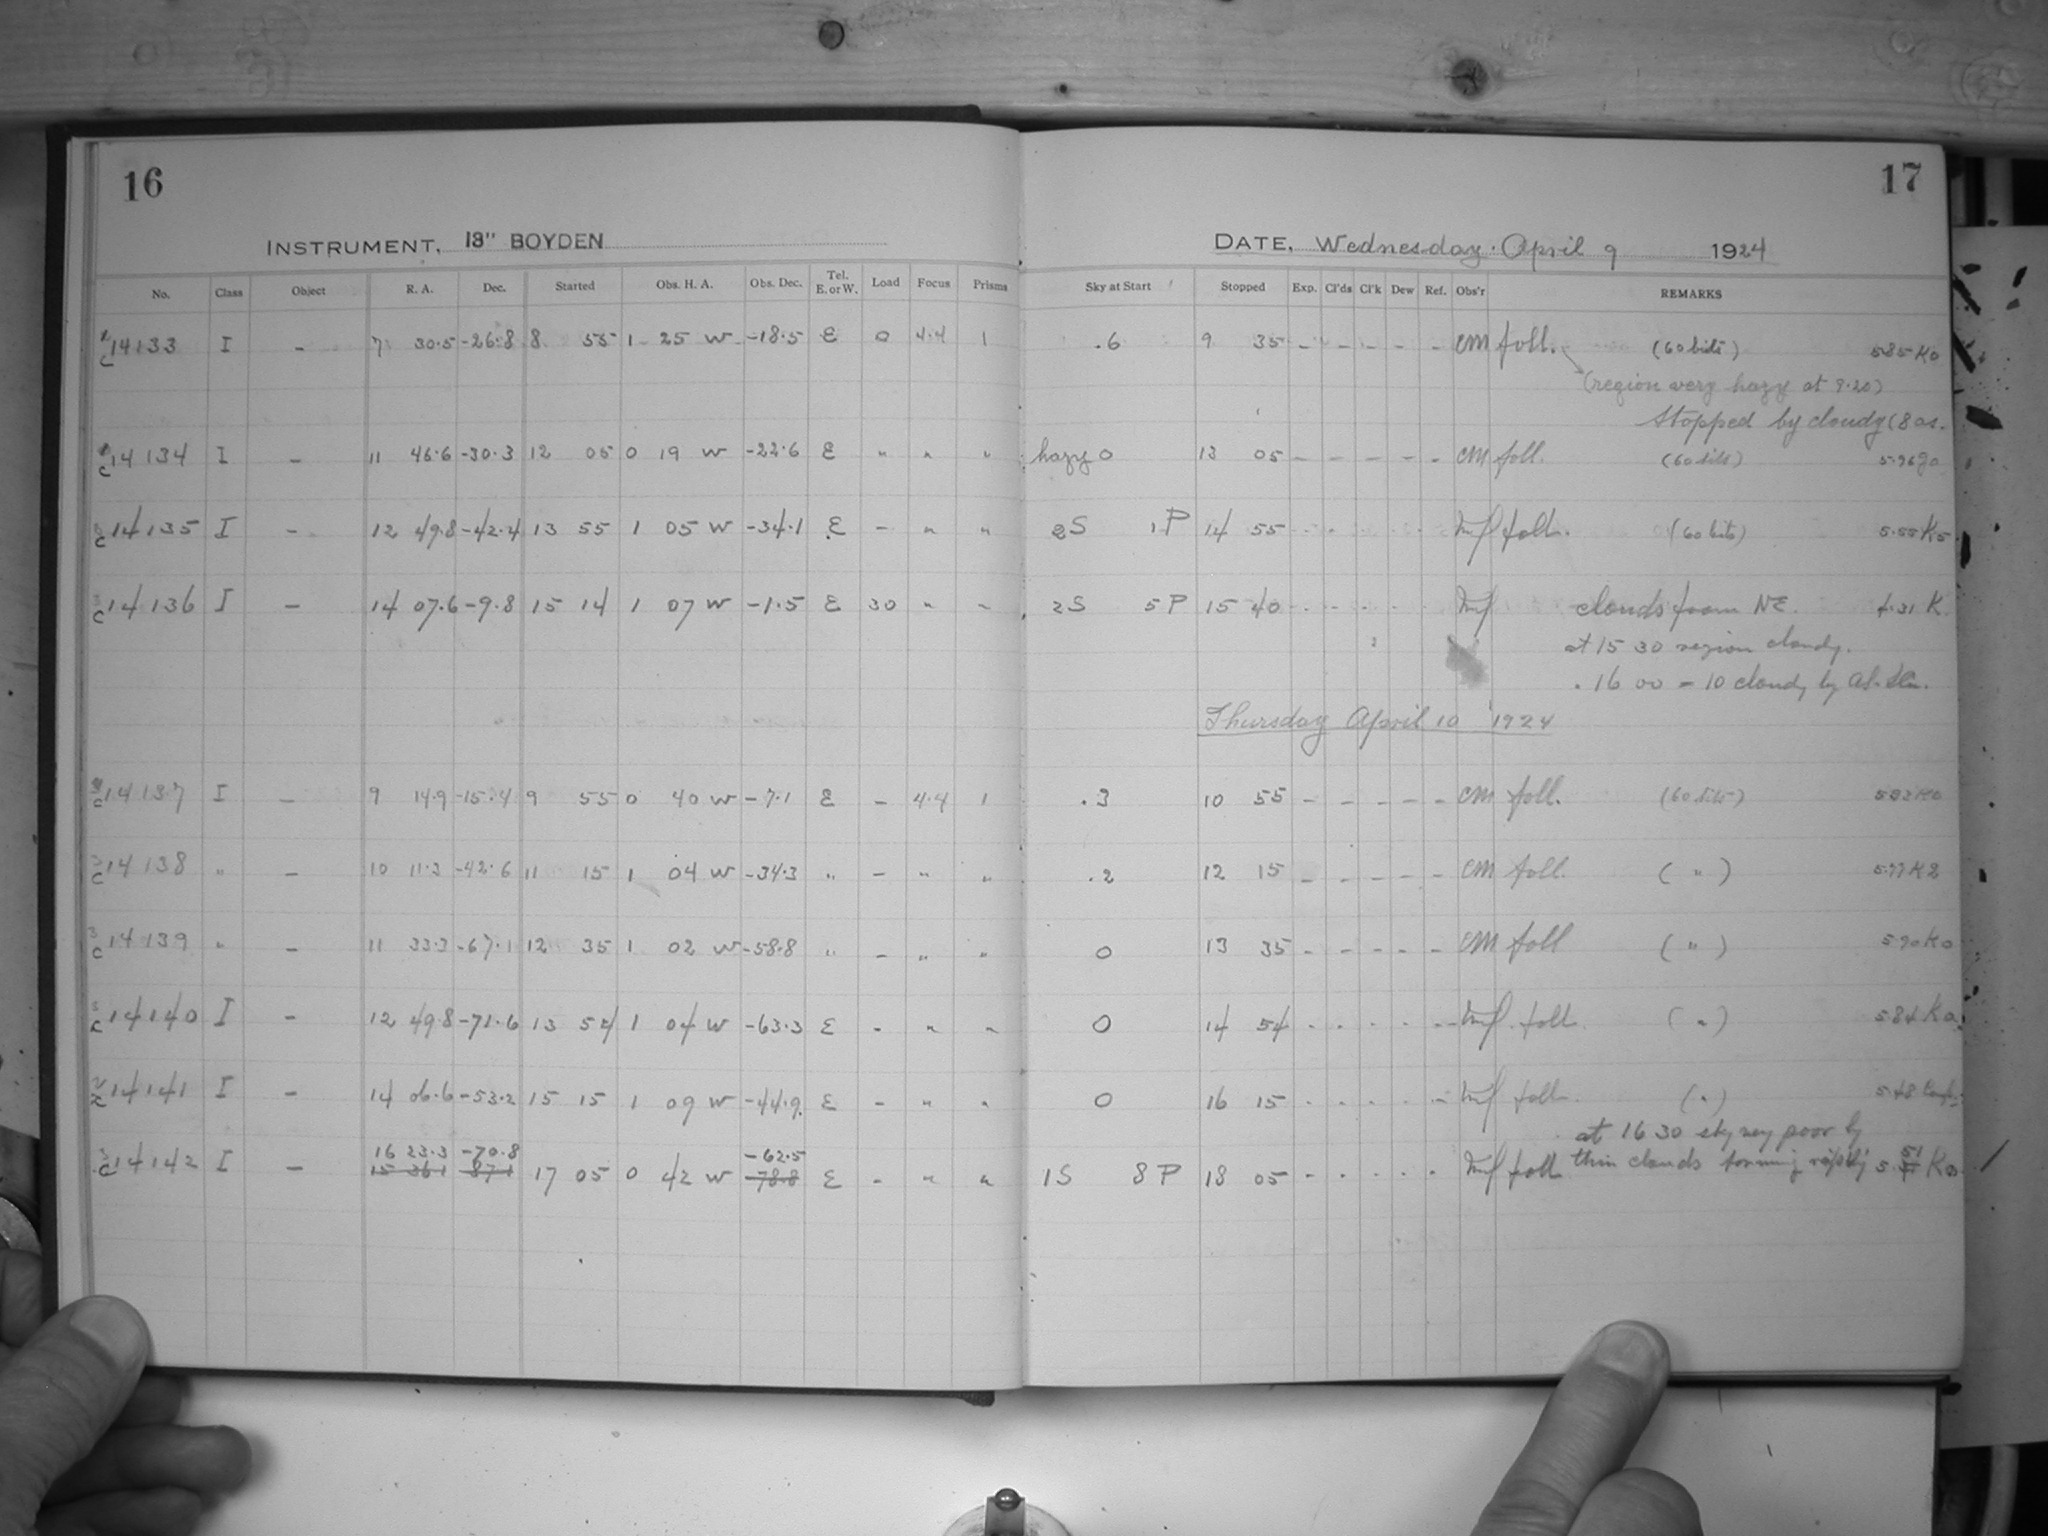 16
17
INSTRUMENT, 13" BOYDEN
DATE, Wednesday. April 9 1924
No. Class Object R. A. Dec. Started Obs. H. A. Obs. Dec. Tel. E. or W. Load Focus Prisms Sky at Start Stopped Exp. Cl'ds Cl'k Dew Ref. Obs'r REMARKS
C 14133 I - 7 30.5 -26.8 8 55 1 25 W -18.5 E 0 4.4 1 .6 9 35 - - - - - CM foll. (60 bits) 5.85 K0
(region very hazy at 9.20)
Stopped by cloudy (8 as.
C 14134 I - 11 46.6 -30.3 12 05 0 19 W -22.6 E " " " hazy 0 13 05 - - - - - CM foll. (60 bits)
C 14135 I - 12 49.8 -42.4 13 55 1 05 W -34.1 E - " " 2S 1P 14 55 foll. (60 bits) 5.55 K5
C 14136 I - 14 07.6 -9.8 15 14 1 07 W -1.5 E 30 " " 2S 5P 15 40 clouds from NE. 4.31 K
at 15 30 region cloudy.
. 16 00 - 10 cloudy by
Thursday April 10 1924
C 14137 I - 9 14.9 -15.4 9 55 0 40 W -7.1 E - 4.4 1 .3 10 55 - - - - - CM foll. (60 bits) 5.82 K0
C 14138 " - 10 11.3 -42.6 11 15 1 04 W -34.3 " - " " .2 12 15 - - - - - CM foll. ( " ) 5.77 K2
C 14139 " - 11 33.3 -67.1 12 35 1 02 W -58.8 " - " " 0 13 35 - - - - - CM foll ( " ) 5.90 K0
C 14140 I - 12 49.8 -71.6 13 54 1 04 W -63.3 E - " " 0 14 54 foll. ( " ) 5.84 K0
C 14141 I - 14 06.6 -53.2 15 15 1 09 W -44.9 E - " " 0 16 15 foll. ( " ) 5.48
at 16 30 sky very poor by
16 23.3 -70.8 -62.5
C 14142 I - 15 36.1 87.1 17 05 0 42 W -78.8 E - " " 1S 8P 18 05 foll thin clouds forming rapidly 5.51 K0